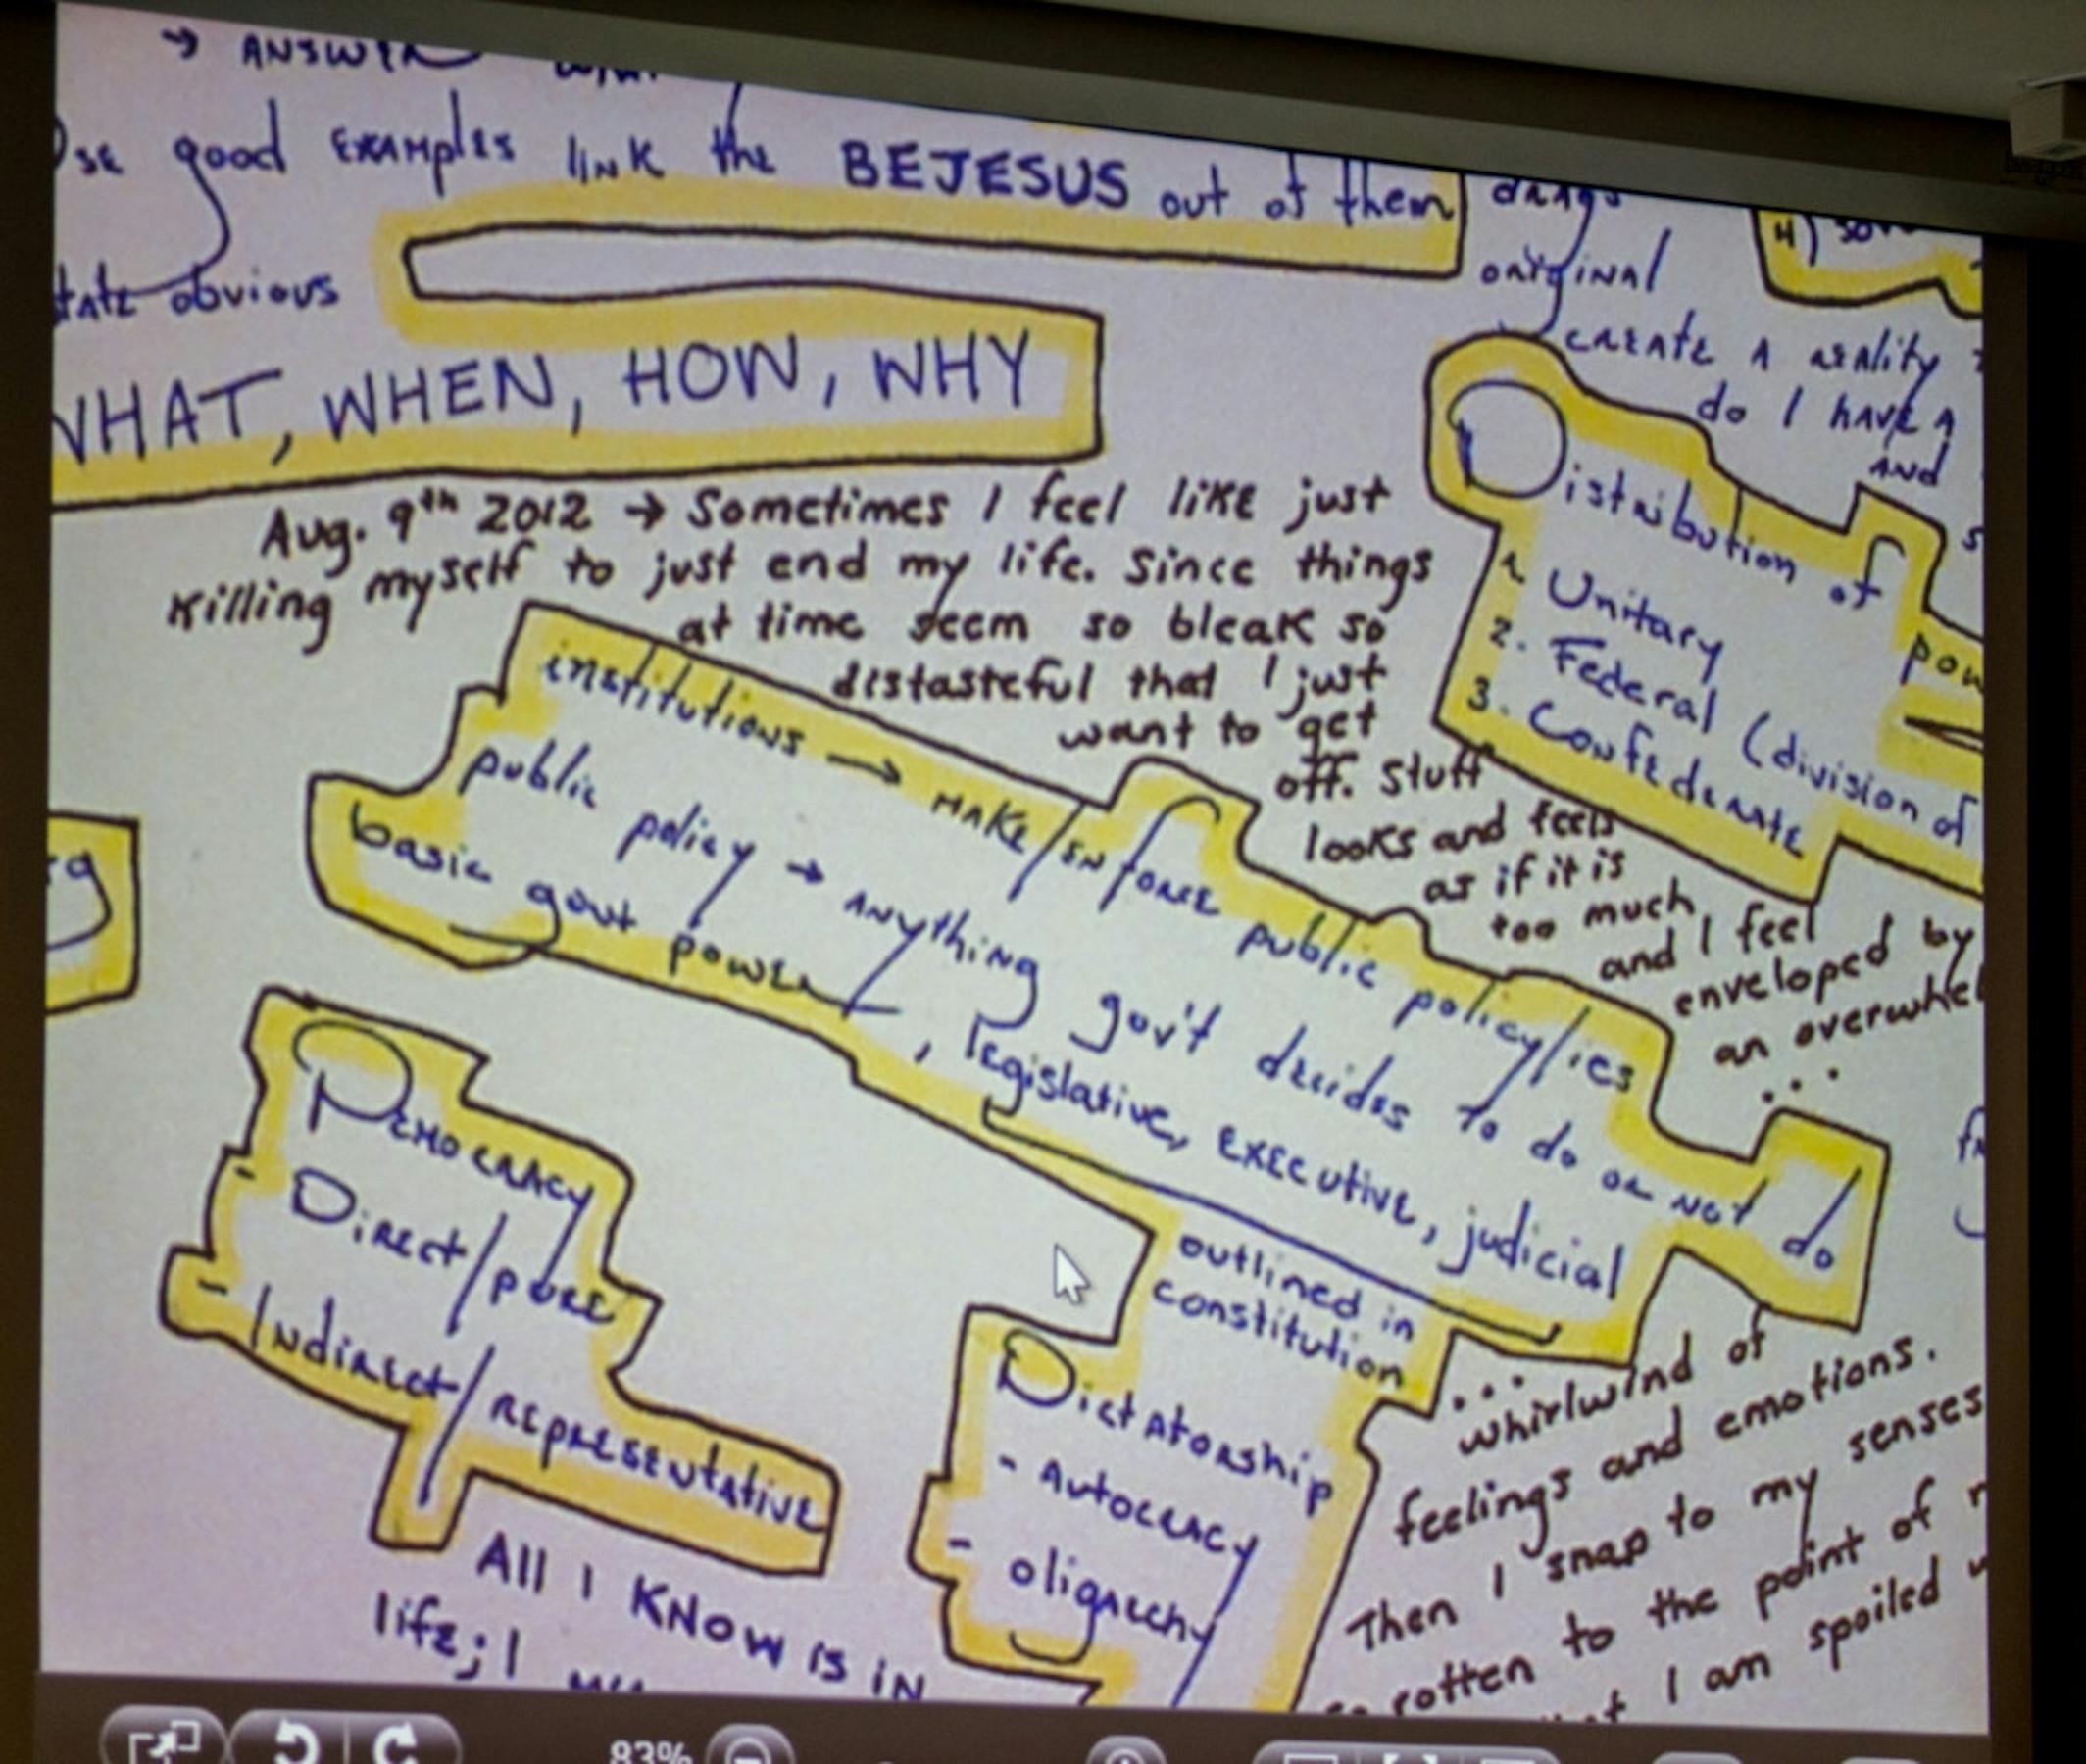 → ANSWER
Use good EXAMPLES link the BEJESUS out of them
state obvious
WHAT, WHEN, HOW, WHY
drags
original
create a reality
do I have a
and
4)
Aug. 9th 2012 → Sometimes I feel like just
killing myself to just end my life. Since things
at time seem so bleak so
distasteful that I just
want to get
off. Stuff
looks and feels
as if it is
too much
and I feel
enveloped by
an overwhel
...
Distribution of
pow
1. Unitary
2. Federal (division of
3. Confederate
institutions → make/enforce public policy/ies
public policy → anything gov't decides to do or not do
basic govt power, legislative, executive, judicial
outlined in
constitution
Democracy
- Direct/pure
- Indirect/representative
Dictatorship
- Autocracy
- oligarchy
...
whirlwind of
feelings and emotions.
Then I snap to my senses
so rotten to the point of
I am spoiled
All I KNOW IS IN
life; I
83%